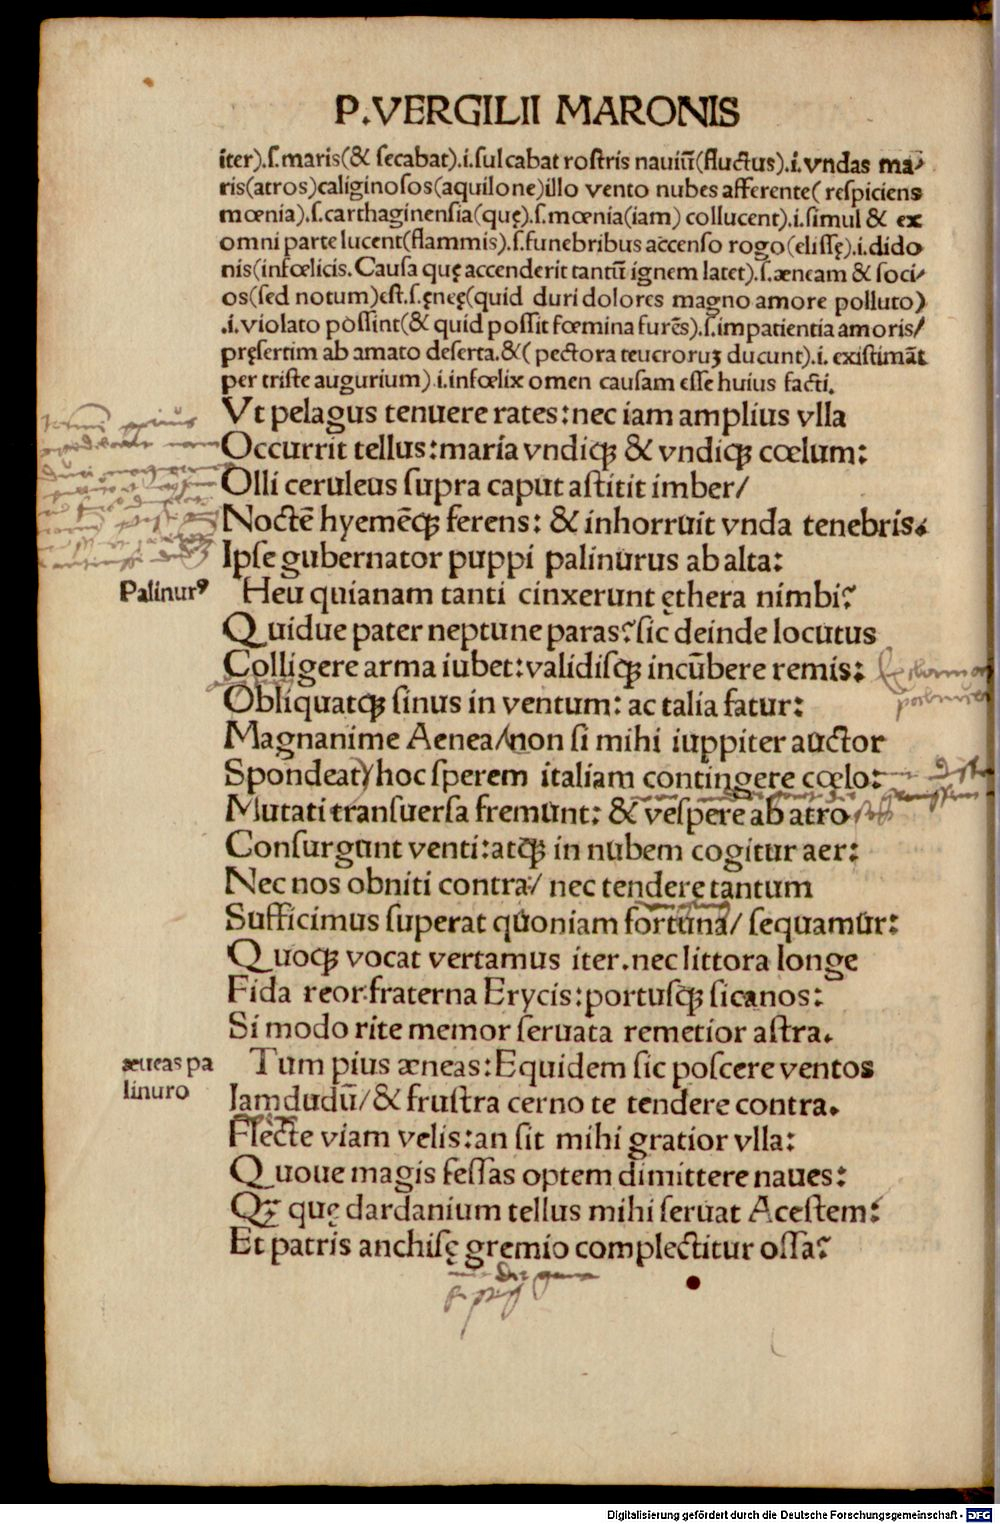 P.VERGILII MARONIS
iter).ſ.maris(& ſecabat).i.ſulcabat roſtris nauiū(fluctus).i.vndas ma⸗
ris(atros)caliginoſos(aquilone)illo vento nubes afferente( reſpiciens
mœnia).ſ.carthaginenſia(quę).ſ.mœnia(iam) collucent).i.ſimul & ex
omni parte lucent(flammis).ſ.funebribus accenſo rogo(eliſſę).i.dido
nis(infœlicis.Cauſa quę accenderit tantū ignem latet).ſ.æneam & ſoci⸗
os(ſed notum)eſt.ſ.ęneę(quid duri dolores magno amore polluto)
.i.violato poſſint(& quid poſſit fœmina furēs).ſ.impatientia amoris/
pręſertim ab amato deſerta.&( pectora teucroruꝫ ducunt).i. exiſtimāt
per triſte augurium).i.infœlix omen cauſam eſſe huius facti.
Vt pelagus tenuere rates:nec iam amplius vlla
Occurrit tellus:maria vndiqꝫ & vndiqꝫ cœlum:
Olli ceruleus ſupra caput aſtitit imber/
Noctē hyemēqꝫ ferens: & inhorruit vnda tenebris.
Ipſe gubernator puppi palinurus ab alta:
Palinurꝰ Heu quianam tanti cinxerunt ęthera nimbi?
Quidue pater neptune paras?ſic deinde locutus
Colligere arma iubet:validiſqꝫ incūbere remis:
Obliquatqꝫ ſinus in ventum: ac talia fatur:
Magnanime Aenea/non ſi mihi iuppiter auctor
Spondeat/hoc ſperem italiam contingere cœlo:
Mutati tranſuerſa fremunt: & veſpere ab atro
Conſurgunt venti:atqꝫ in nubem cogitur aer:
Nec nos obniti contra:/ nec tendere tantum
Sufficimus ſuperat quoniam fortuna/ ſequamur:
Quoqꝫ vocat vertamus iter.nec littora longe
Fida reor.fraterna Erycis:portuſqꝫ ſicanos:
Si modo rite memor ſeruata remetior aſtra.
æneas pa Tum pius æneas:Equidem ſic poſcere ventos
linuro Iamdudū/& fruſtra cerno te tendere contra.
Flecte viam velis:an ſit mihi gratior vlla:
Quoue magis feſſas optem dimittere naues:
Qꝫ quę dardanium tellus mihi ſeruat Aceſtem:
Et patris anchiſę gremio complectitur oſſa?
Digitalisierung gefördert durch die Deutsche Forschungsgemeinschaft - DFG